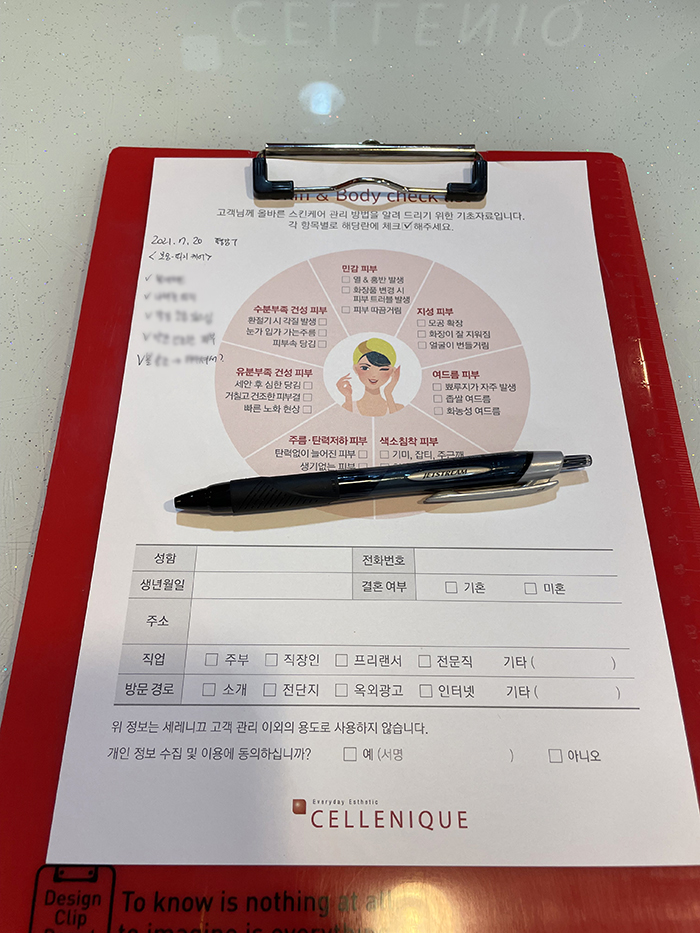 CELLENIQ
& Body check
고객님께 올바른 스킨케어 관리 방법을 알려 드리기 위한 기초자료입니다.
각 항목별로 해당란에 체크 ✓ 해주세요.
2021. 7. 20
민감 피부
열 & 홍반 발생
화장품 변경 시
피부 트러블 발생
피부 따끔거림
수분부족 건성 피부
환절기 시 각질 발생
눈가 입가 가는주름
피부속 당김
지성 피부
모공 확장
화장이 잘 지워짐
얼굴이 번들거림
유분부족 건성 피부
세안 후 심한 당김
거칠고 건조한 피부결
빠른 노화 현상
여드름 피부
뾰루지가 자주 발생
좁쌀 여드름
화농성 여드름
주름·탄력저하 피부
탄력없이 늘어진 피부
생기없는 피부
색소침착 피부
기미, 잡티, 주근깨
JETSTREAM
성함 전화번호
생년월일 결혼 여부 기혼 미혼
주소
직업 주부 직장인 프리랜서 전문직 기타 ( )
방문 경로 소개 전단지 옥외광고 인터넷 기타 ( )
위 정보는 세레니끄 고객 관리 이외의 용도로 사용하지 않습니다.
개인 정보 수집 및 이용에 동의하십니까? 예 (서명 ) 아니오
Everyday Esthetic
CELLENIQUE
Design
Clip
To know is nothing at all
to imagine is everything